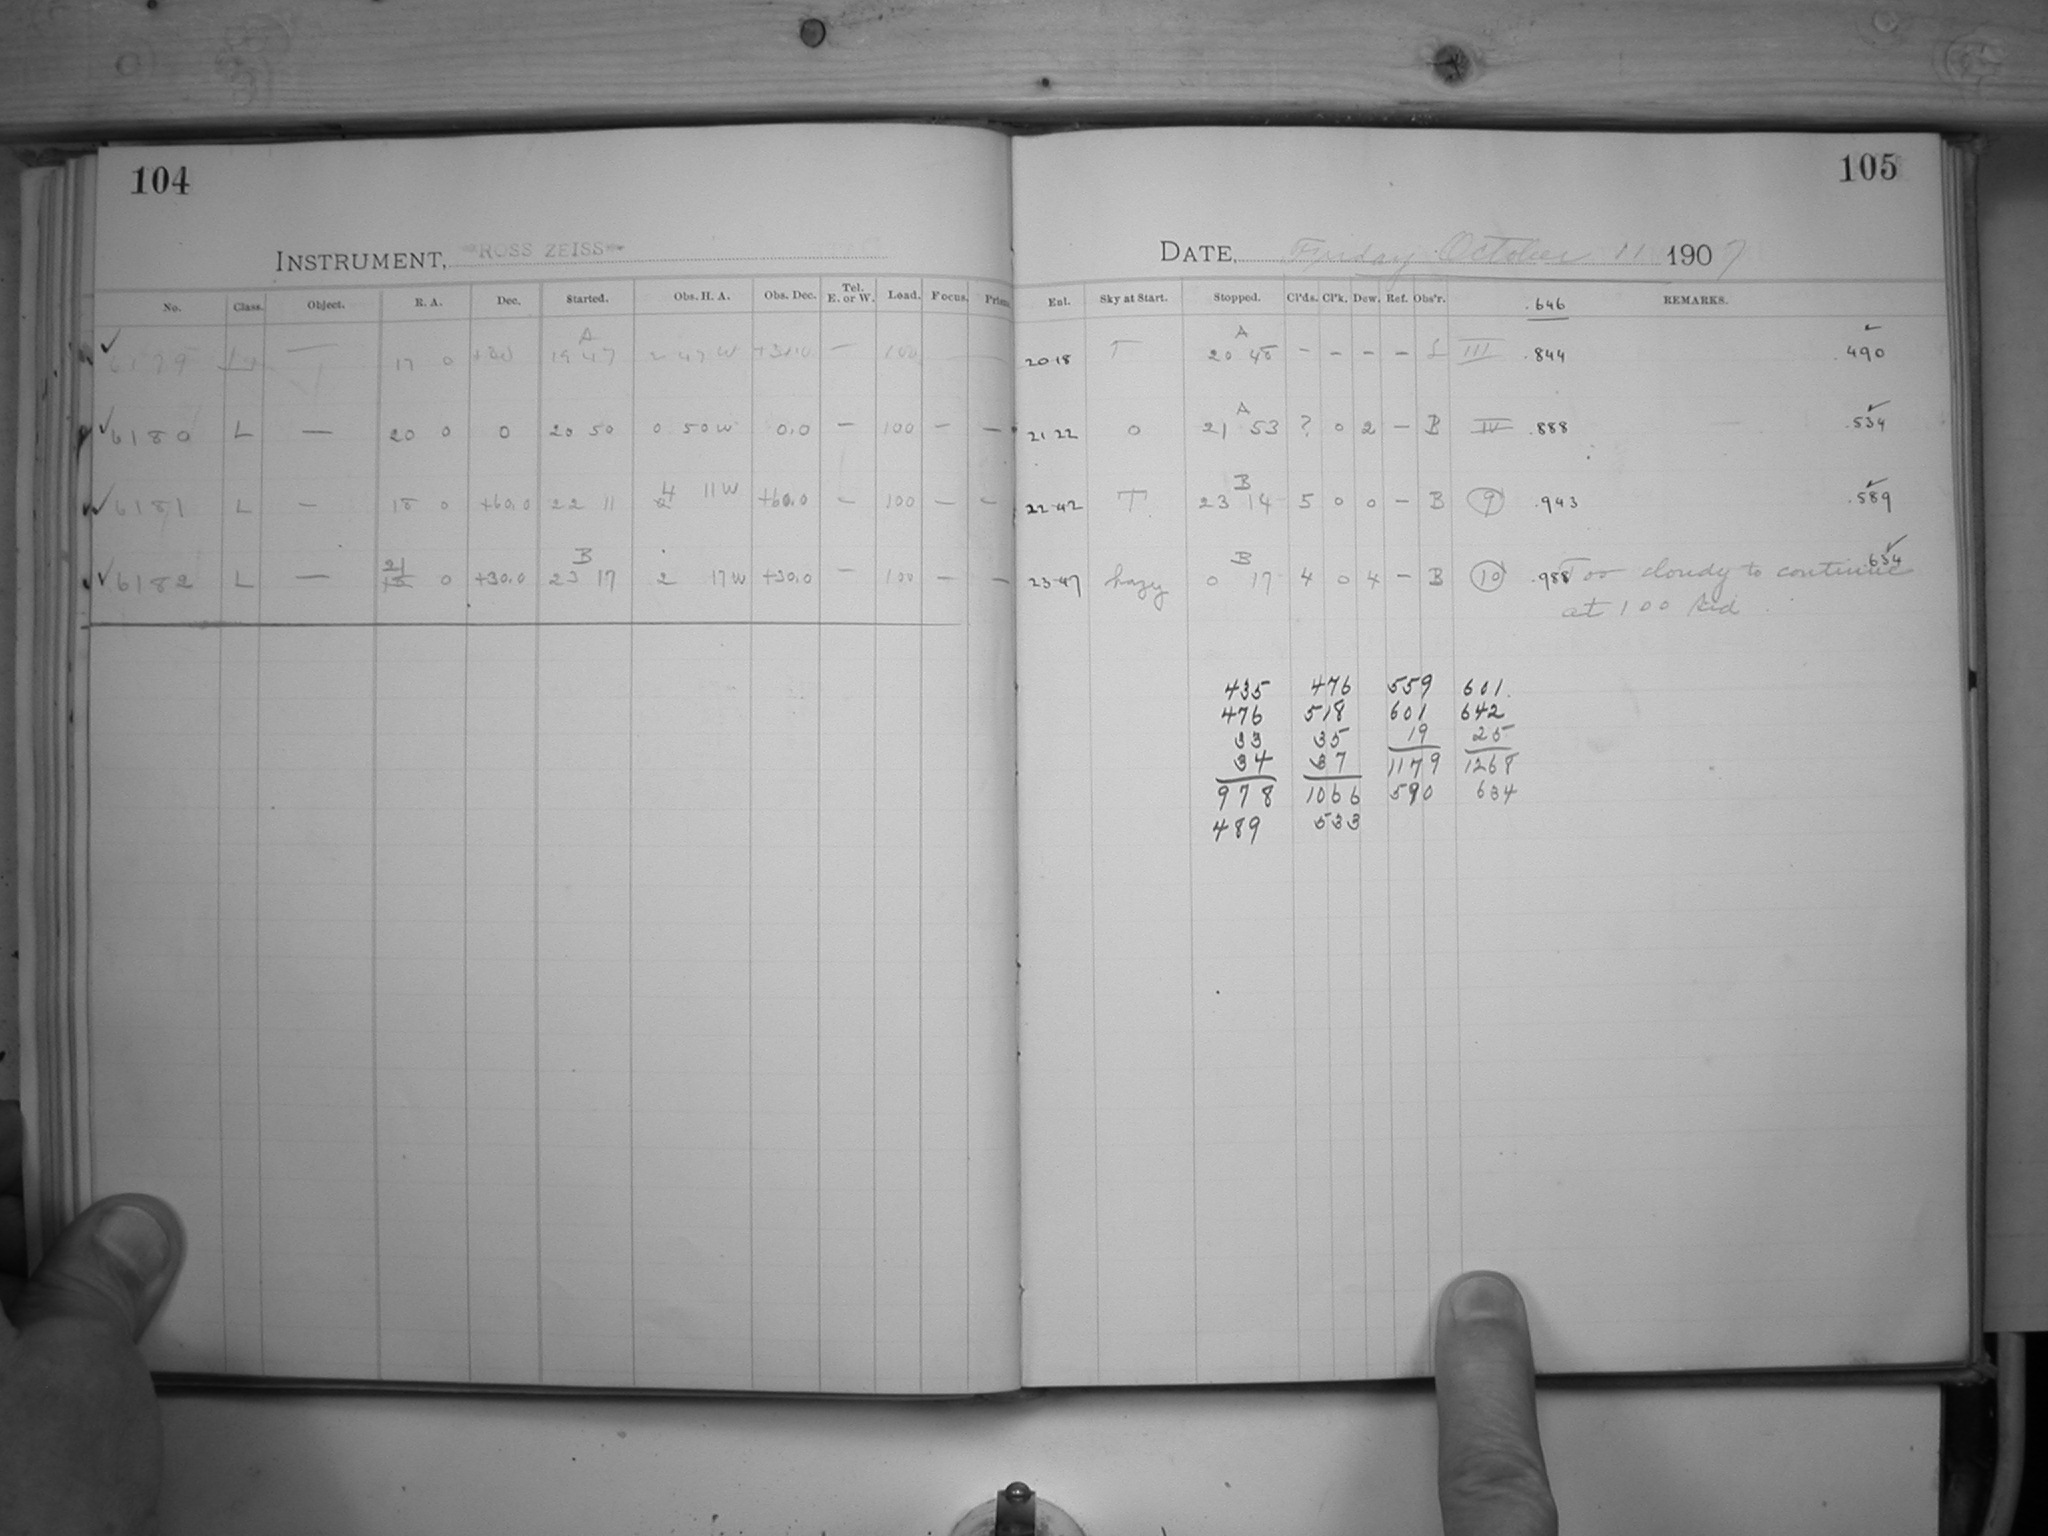 104
INSTRUMENT, ROSS ZEISS
No. Class. Object. R. A. Dec. Started. Obs. H. A. Obs. Dec. Tel. E. or W. Load. Focus. Prism.
A
6179 — 17 0 +30 19 47 2 47 W +30.0 — 100
6180 L — 20 0 0 20 50 0 50 W 0.0 — 100 — —
6181 L — 18 0 +60.0 22 11 4 11 W +60.0 — 100 — —
B
6182 L — 21 0 +30.0 23 17 2 17 W +30.0 — 100 — —
105
DATE, Friday October 11 1907
Ent. Sky at Start. Stopped. Cl'ds. Cl'k. Dew. Ref. Obs'r. .646 REMARKS.
A
20.18 T 20 48 — — — — L III .844 .490
A
21 22 0 21 53 ? 0 2 — B IV .888 .534
B
22.42 T 23 14 5 0 0 — B 9 .943 .589
B
23.47 hazy 0 17 4 0 4 — B 10 .988 Too cloudy to continue .634
at 100 Sid
435 476 559 601.
476 518 601 642
33 35 19 25
34 37 1179 1268
978 1066 590 634
489 533